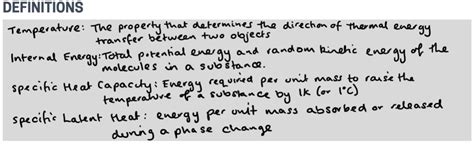 DEFINITIONS
Temperature: The property that determines the direction of thermal energy
transfer between two objects
Internal Energy: Total potential energy and random kinetic energy of the
molecules in a substance.
Specific Heat Capacity: Energy required per unit mass to raise the
temperature of a substance by 1K (or 1°C)
Specific Latent Heat: energy per unit mass absorbed or released
during a phase change